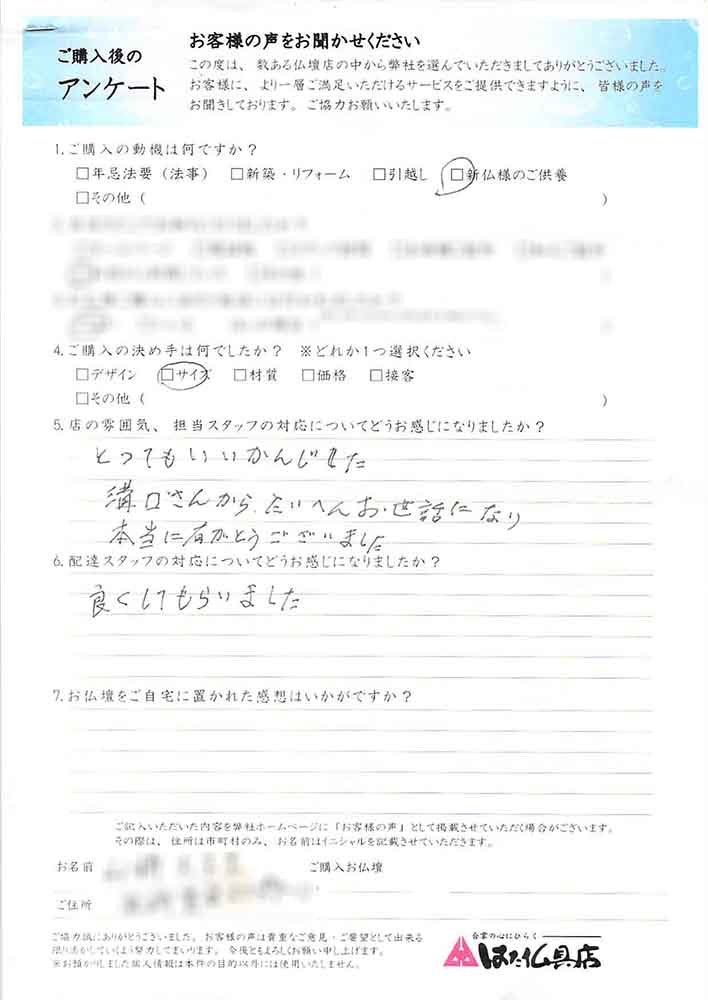 ご購入後の
アンケート
お客様の声をお聞かせください
この度は、数ある仏壇店の中から弊社を選んでいただきましてありがとうございました。
お客様に、より一層ご満足いただけるサービスをご提供できますように、皆様の声を
お聞きしております。ご協力お願いいたします。
1.ご購入の動機は何ですか？
□年忌法要（法事） □新築・リフォーム □引越し □新仏様のご供養
□その他（ ）
4.ご購入の決め手は何でしたか？ ※どれか1つ選択ください
□デザイン □サイズ □材質 □価格 □接客
□その他（ ）
5.店の雰囲気、担当スタッフの対応についてどうお感じになりましたか？
とってもいいかんじでした
溝口さんから、たいへんお世話になり
本当に有がとうございました
6.配達スタッフの対応についてどうお感じになりましたか？
良くしてもらいました
7.お仏壇をご自宅に置かれた感想はいかがですか？
ご記入いただいた内容を弊社ホームページに「お客様の声」として掲載させていただく場合がございます。
その際は、住所は市町村のみ、お名前はイニシャルを記載させていただきます。
お名前 ご購入お仏壇
ご住所
ご協力誠にありがとうございました。お客様の声は貴重なご意見・ご要望として出来る
限り活かしていくよう努力してまいります。今後ともよろしくお願い申し上げます。
※お預かりしました個人情報は本件の目的以外には使用いたしません。
合掌の心にひらく
はた仏具店